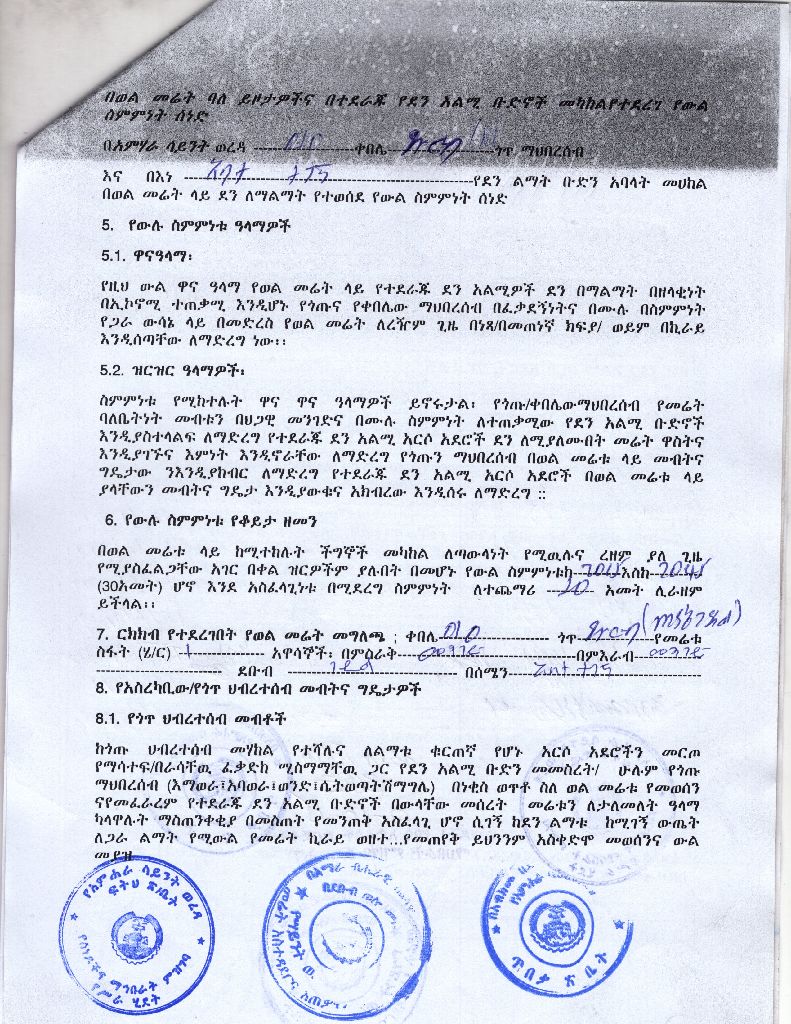 በወል መሬት ባለ ይዞታዎችና በተደራጁ የደን አልሚ ቡድኖች መካከልየተደረገ የውል
ስምምነት ሰነድ
በአምሃራ ሳይንት ወረዳ ቀበሌ ጎጥ ማህበረሰብ
እና በእነ የደን ልማት ቡድን አባላት መሀከል
በወል መሬት ላይ ደን ለማልማት የተወሰደ የውል ስምምነት ሰነድ
5. የውሉ ስምምነቱ ዓላማዎች
5.1. ዋናዓላማ፡
የዚህ ውል ዋና ዓላማ የወል መሬት ላይ የተደራጁ ደን አልሚዎች ደን በማልማት በዘላቂነት
በኢኮኖሚ ተጠቃሚ እንዲሆኑ የጎጡና የቀበሌው ማህበረሰብ በፈቃደኝነትና በሙሉ በስምምነት
የጋራ ውሳኔ ላይ በመድረስ የወል መሬት ለረዥም ጊዜ በነጻ/በመጠነኛ ክፍያ/ ወይም በኪራይ
እንዲሰጣቸው ለማድረግ ነው፡፡
5.2. ዝርዝር ዓላማዎች፡
ስምምነቱ የሚከተሉት ዋና ዋና ዓላማዎች ይኖሩታል፡ የጎጡ/ቀበሌውማህበረሰብ የመሬት
ባለቤትነት መብቱን በህጋዊ መንገድና በሙሉ ስምምነት ለተጠቃሚው የደን አልሚ ቡድኖች
እንዲያስተላልፍ ለማድረግ የተደራጁ ደን አልሚ አርሶ አደሮች ደን ለሚያለሙበት መሬት ዋስትና
እንዲያገኙና እምነት እንዲኖራቸው ለማድረግ የጎጡን ማህበረሰብ በወል መሬቱ ላይ መብትና
ግዴታው ንእንዲያከብር ለማድረግ የተደራጁ ደን አልሚ አርሶ አደሮች በወል መሬቱ ላይ
ያላቸውን መብትና ግዴታ እንዲያውቁና አክብረው እንዲሰሩ ለማድረግ ::
6. የውሉ ስምምነቱ የቆይታ ዘመን
በወል መሬቱ ላይ ከሚተከሉት ችግኞች መካከል ለጣውላነት የሚዉሉና ረዘም ያለ ጊዜ
የሚያስፈልጋቸው አገር በቀል ዝርዎችም ያሉበት በመሆኑ የውል ስምምነቱከ እስከ
(30አመት) ሆኖ እንደ አስፈላጊነቱ በሚደረግ ስምምነት ለተጨማሪ 20 አመት ሊራዘም
ይችላል፡፡
7. ርክክብ የተደረገበት የወል መሬት መግለጫ ; ቀበሌ 010 ጎጥ የመሬቱ
ስፋት (ሄ/ር) 1 አዋሳኞች፡ በምስራቅ መንገድ በምእራብ መንገድ
ደቡብ ገደል በሰሜን
8. የአስረካቢው/የጎጥ ህብረተሰብ መብትና ግዴታዎች
8.1. የጎጥ ህብረተሰብ መብቶች
ከጎጡ ህብረተሰብ መሃከል የተሻሉና ለልማቱ ቁርጠኛ የሆኑ አርሶ አደሮችን መርጦ
የማሳተፍ/በራሳቸዉ ፈቃድከ ሚስማማቸዉ ጋር የደን አልሚ ቡድን መመስረት/ ሁሉም የጎጡ
ማህበረሰብ (እማወራ፤አባወራ፤ወንድ፤ሴትወጣትሽማግሌ) በነቂስ ወጥቶ ስለ ወል መሬቱ የመወሰን
ናየመፈራረም የተደራጁ ደን አልሚ ቡድኖች በውላቸው መሰረት መሬቱን ለታለመለት ዓላማ
ካላዋሉት ማስጠንቀቂያ በመስጠት የመንጠቅ አስፈላጊ ሆኖ ሲገኝ ከደን ልማቱ ከሚገኝ ውጤት
ለጋራ ልማት የሚውል የመሬት ኪራይ ወዘተ...የመጠየቅ ይህንንም አስቀድሞ መወሰንና ውል
መያዝ
የአምሐራ ሳይንት ወረዳ
ፍትህ ጽ/ቤት
የሰነዶችና ማኅበራት ምዝገባ
የሥራ ሂደት
ጥበቃ ጽ ቤት